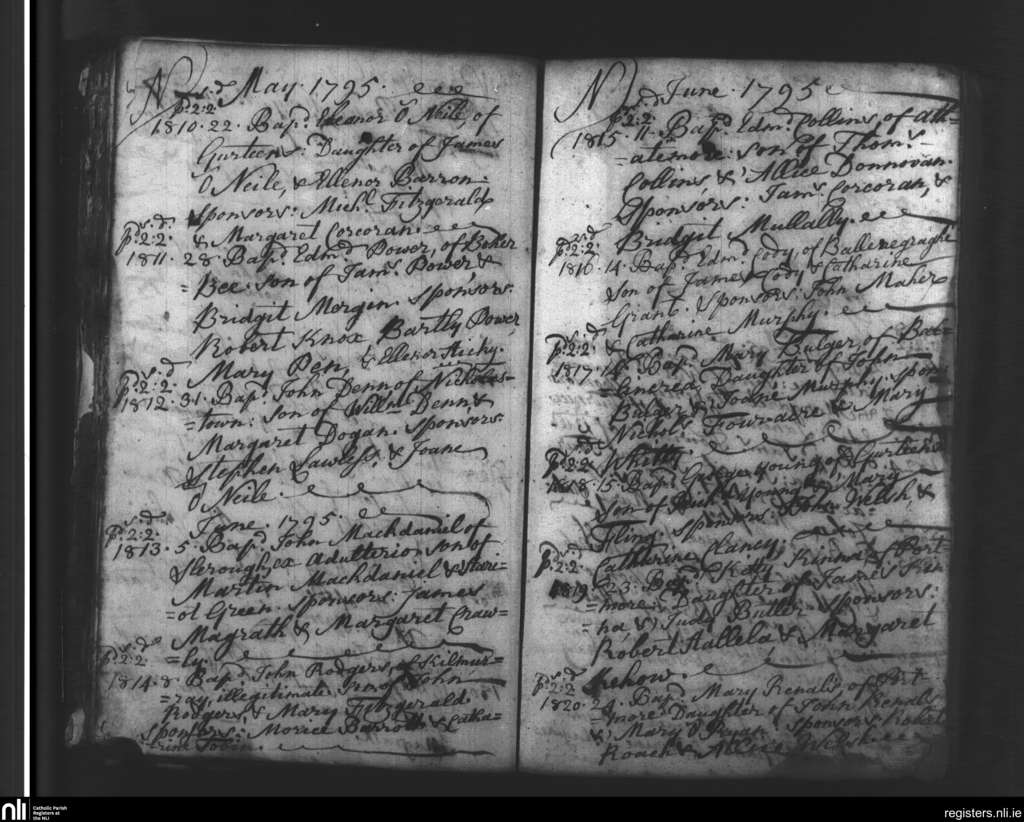 N s. d May. 1795.
pd. 2:2
1810. 22. Bapd. Eleanor O Neile of
Gurteens: Daughter of James
O Neile, & Ellenor Barron:
Sponsors: Michl. Fitzgerald
& Margaret Corcoran.
s. d.
pd. 2:2.
1811. 28. Bapd. Edmd. Power, of Boher
=Bee: son of Jams. Power, &
Bridgit Mergin. Sponsors:
Robert Knox Bartly Power
Mary Pen, & Ellenor
s. d
pd. 2:2.
1812. 31. Bapd. John Denn of Nicholas=
=town: son of Willm Denn, &
Margaret Dogan. Sponsors:
Stephen Lawless, & Joane
O Neile.
June. 1795.
s. d
pd. 2:2.
1813. 5. Bapd. John Mackdaniel of
ex Adulterio: son of
Martin Mackdaniel &
=ot Green. Sponsors: James
Magrath & Margaret Craw=
=ly.
s. d
pd. 2:2
1814. 8. Bapd. John Rodgers, of Kilmur=
=ray, illegitimate son of John
Rodgers, & Mary Fitzgerald.
Sponsors: Morice Barron & Catha=
=rine Tobin.
N s. d June. 1795
pd. 2:2
1815. 11. Bapd. Edmd. Collins, of Ath=
=atemore: son of Thoms.
Collins, & Allice Donnovan.
Sponsors: Jams. Corcoran, &
Bridgit Mullally.
s. d
pd. 2:2
1816. 14. Bapd. Edmd. Cody of
son of James Cody & Catharine
Grant: Sponsors: John Maher
& Catharine Murphy.
s. d
pd. 2:2
1817. 14. Bapd. Mary Bulger of Bal=
Daughter of John
Bulger & Joane Murphy: spon=
Nichols & Mary
Whitty.
s. d
pd. 2:2
1818. 15. Bapd. George Young of Gurteens
son of Young & Mary
Fling Sponsors: John Welsh, &
Catherine Clancy,
s. d
pd. 2:2
1819 23. Bapd. Katy Kenna of Port=
=more: Daughter of James Ken
=na & Judy Butler. Sponsors:
Robert Hallela & Margaret
Kehow.
s. d
pd. 2:2
1820. 24. Bapd. Mary Renals, of Port=
=more: Daughter of John Renals
& Mary O Ryan. Sponsors: Robert
Roach & Allice Welsh.
nli
Catholic Parish
Registers at
the NLI
registers.nli.ie